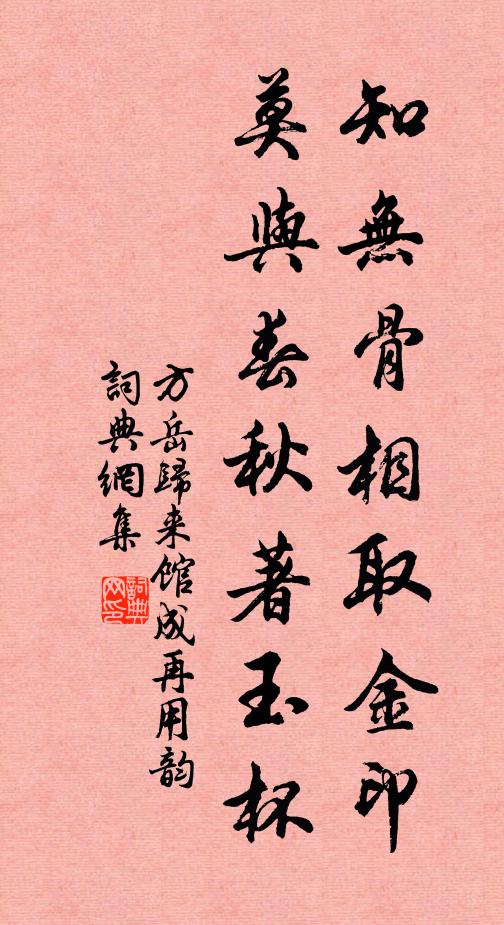 知無骨相取金印
莫與春秋著玉杯
方岳歸来館成再用韵
詞典網集
詞典网印